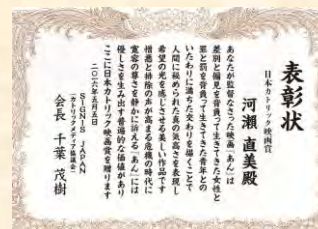 表彰状
日本カトリック映画賞
河瀨 直美殿
あなたが監督なさった映画「あん」は
差別と偏見を背負って生きてきた女性と
罪と罰を背負って生きてきた青年との
いたわりに満ちた交わりを描くことで
人間に秘められた真の気高さを表現し
希望の光を感じさせる美しい作品です
憎悪と排除の声が高まる危機の時代に
寛容の尊さを静かに訴える「あん」には
優しさを生み出す普遍的な価値があり
ここに日本カトリック映画賞を贈ります
二〇一六年五月五日
SIGNIS JAPAN
(カトリックメディア協議会)
会長 千葉 茂樹